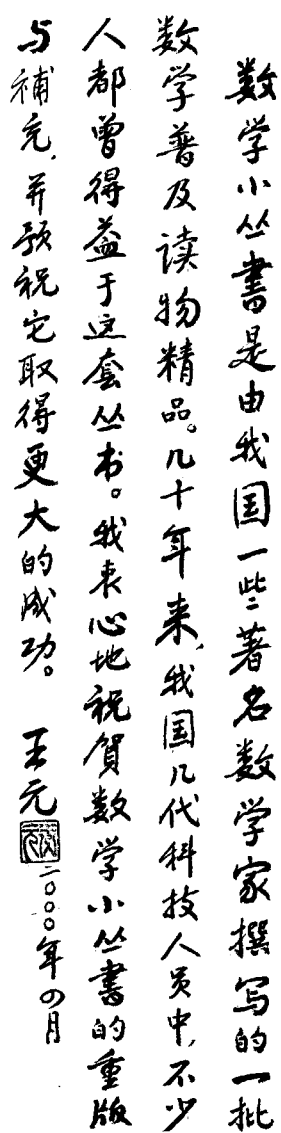 数学小丛書是由我国一些著名数学家撰写的一批
数学普及读物精品。几十年来，我国几代科技人员中，不少
人都曾得益于这套丛书。我衷心地祝贺数学小丛書的重版
与補充，并预祝它取得更大的成功。
王元
二〇〇〇年四月